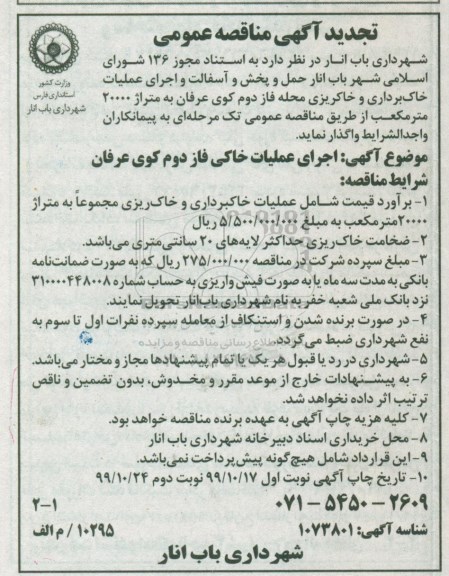 تجدید آگهی مناقصه عمومی
وزارت کشور
استانداری فارس
شهرداری باب انار
شهرداری باب انار در نظر دارد به استناد مجوز ۱۳۶ شورای
اسلامی شهر باب انار حمل و پخش و آسفالت و اجرای عملیات
خاک‌برداری و خاکریزی محله فاز دوم کوی عرفان به متراژ ۲۰۰۰۰
مترمکعب از طریق مناقصه عمومی تک مرحله‌ای به پیمانکاران
واجدالشرایط واگذار نماید.
موضوع آگهی: اجرای عملیات خاکی فاز دوم کوی عرفان
شرایط مناقصه:
۱- برآورد قیمت شامل عملیات خاکبرداری و خاک‌ریزی مجموعاً به متراژ
۲۰۰۰۰مترمکعب به مبلغ ۵/۵۰۰/۰۰۰/۰۰۰ ریال
۲- ضخامت خاک‌ریزی حداکثر لایه‌های ۲۰ سانتی‌متری می‌باشد.
۳- مبلغ سپرده شرکت در مناقصه ۲۷۵/۰۰۰/۰۰۰ ریال که به صورت ضمانت‌نامه
بانکی به مدت سه ماه یا به صورت فیش واریزی به حساب شماره ۳۱۰۰۰۴۴۸۰۰۸
نزد بانک ملی شعبه خفر به نام شهرداری باب‌انار تحویل نمایند.
۴- در صورت برنده شدن و استنکاف از معامله سپرده نفرات اول تا سوم به
نفع شهرداری ضبط می‌گردد.
۵- شهرداری در رد یا قبول هر یک یا تمام پیشنهادها مجاز و مختار می‌باشد.
۶- به پیشنهادات خارج از موعد مقرر و مخدوش، بدون تضمین و ناقص
ترتیب اثر داده نخواهد شد.
۷- کلیه هزینه چاپ آگهی به عهده برنده مناقصه خواهد بود.
۸- محل خریداری اسناد دبیرخانه شهرداری باب انار
۹- این قرارداد شامل هیچ‌گونه پیش‌پرداخت نمی‌باشد.
۱۰- تاریخ چاپ آگهی نوبت اول ۹۹/۱۰/۱۷ نوبت دوم ۹۹/۱۰/۲۴
۰۷۱ - ۵۴۵۰ - ۲۶۰۹
۲-۱
شناسه آگهی: ۱۰۷۳۸۰۱
۱۰۲۹۵ / م الف
شهرداری باب انار